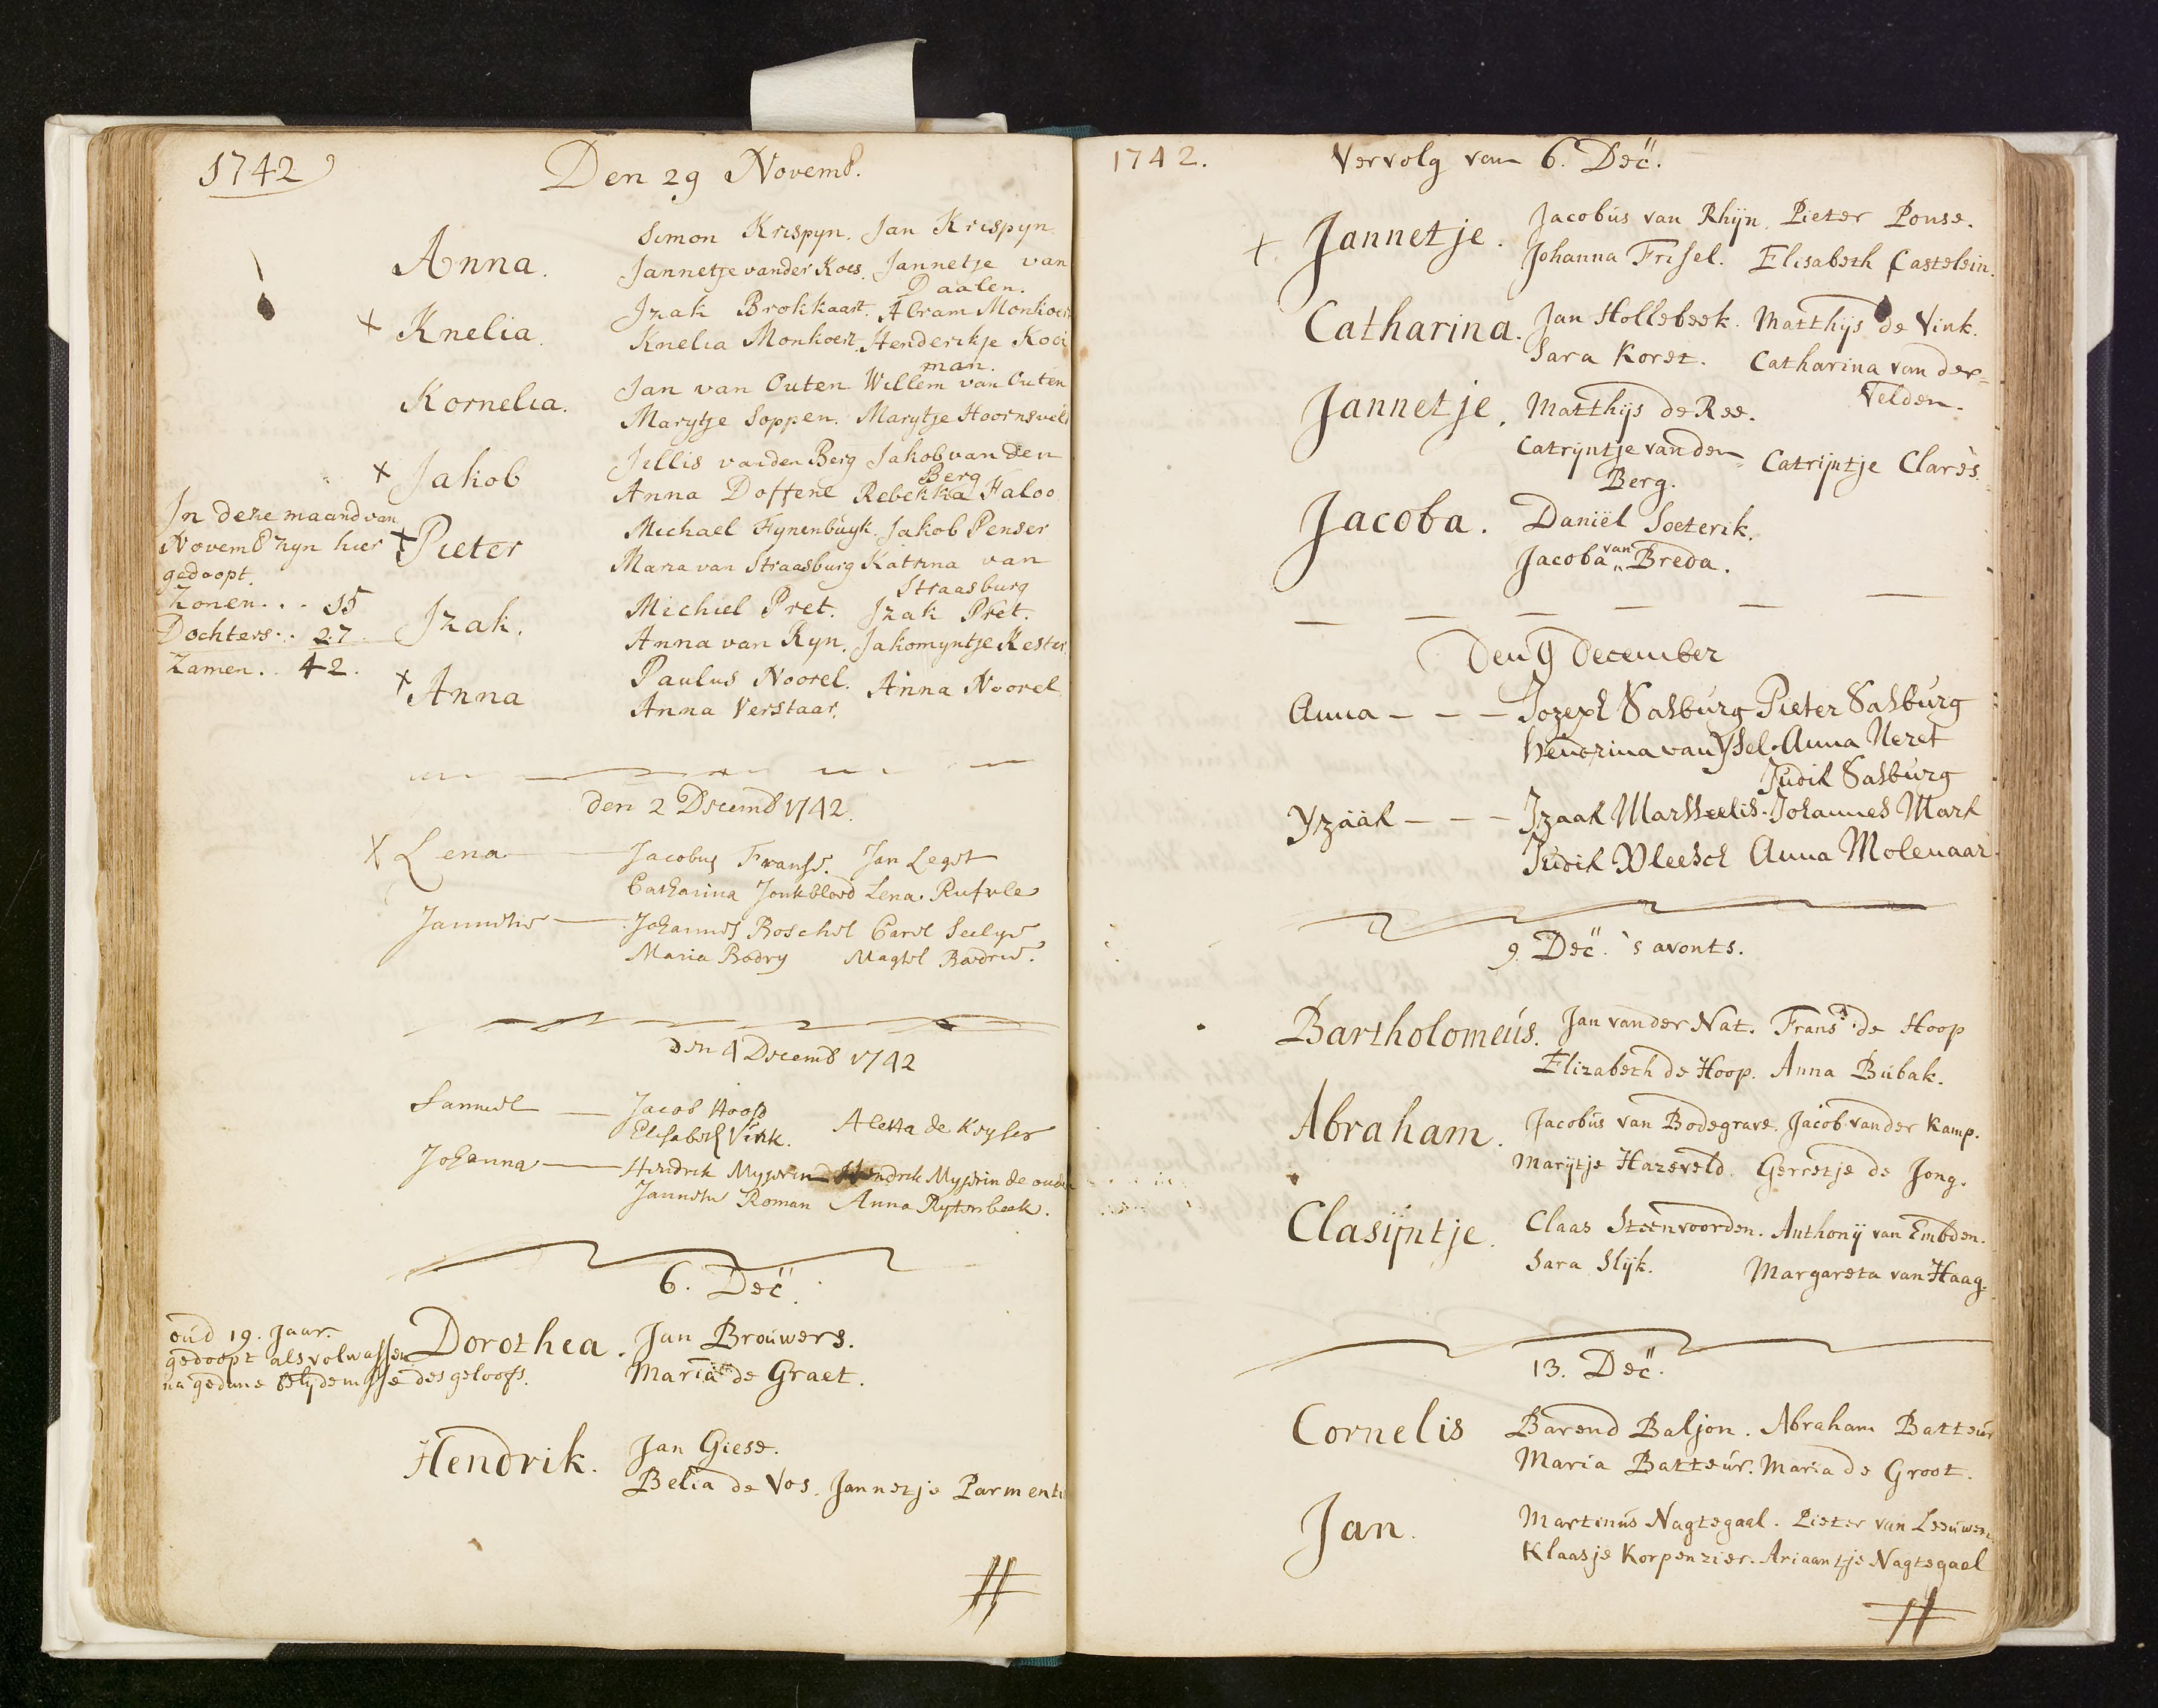 1742
Den 29 Novemb.
Anna.
Simon Krispyn. Jan Krispyn.
Jannetje vander Koes. Jannetje van
Daalen.
Knelia.
Izak Brokkaart. Abram Monkoert
Knelia Monkoert. Henderikje Kooi
man.
Kornelia.
Jan van Outen Willem van Outen
Marytje Soppen. Marytje Hoornsveld
Jakob
Jillis vanden Berg Jakob van den
Berg
Anna Doffene Rebekka Faloo.
In deze maand van
Novemb zyn hier
gedoopt.
Zonen . . . 15
Dochters . . 27
Zamen . . 42.
Pieter
Michael Fynenbuyk. Jakob Penser
Maria van Straasburg Katrina van
Straasburg
Izak.
Michiel Pret. Izak Pret.
Anna van Ryn. Jakomyntje Kester
Anna
Paulus Noorel. Anna Noorel
Anna Verstaar.
den 2 Decemb 1742.
Lena
Jacobus Franss. Jan Legst
Catharina Jonkbloed Lena
Johannes Boschel Carel Seelye
Maria Bodry Magtel
den 4 Decemb 1742
Samuel
Jacob Hoofd
Elisabeth Vink. Aletta de Keyser
Johanna
Hendrik Hendrik de oude
Roman Anna Rytersbeek.
6. Dec.
oud 19. Jaar.
gedoopt als volwassen
na gedane belydenisse des geloofs.
Dorothea.
Jan Brouwers.
Maria de Graet.
Hendrik.
Jan Giese.
Belia de Vos. Jannetje Parmentie
1742.
Vervolg van 6. Dec.
Jannetje.
Jacobus van Rhijn. Pieter Ponse.
Johanna Frisel. Elisabeth Castelein.
Catharina.
Jan Hollebeek. Matthijs de Vink.
Sara Korst. Catharina van der=
Velden.
Jannetje.
Matthijs de Ree.
Catryntje van den= Catrijntje Clares.
Berg.
Jacoba.
Daniël Soeterik.
Jacoba van Breda.
Den 9 December
Anna - - -
Jozeph Salburg Pieter Salburg
Hendrina van Ysel. Anna Neret
Judik Salburg
Yzääk - - -
Izaak Marsselis. Johannes Mark
Judik Vleesch Anna Molenaar.
9. Dec. 's avonts.
Bartholomeús.
Jan vander Nat. Frans de Hoop
Elizabeth de Hoop. Anna Bubak.
Abraham.
Jacobus van Bodegrave. Jacob vander Kamp.
Marijtje Hazeveld. Gerretje de Jong.
Clasijntje.
Claas Steenvoorden. Anthonij van Embden.
Sara Slijk. Margareta van Haag.
13. Dec.
Cornelis
Barend Baljon. Abraham Batteur
Maria Batteur. Maria de Groot.
Jan.
Martinus Nagtegaal. Pieter van Leeuwen.
Klaasje Korpenzier. Ariaantje Nagtegaal